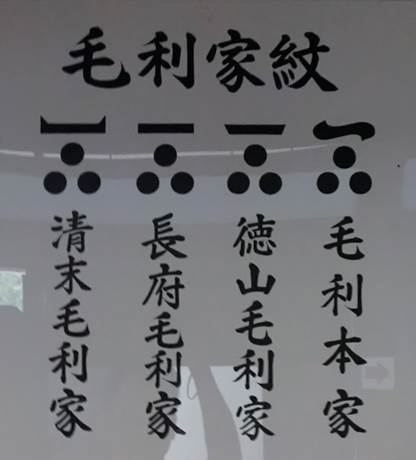 毛利家紋
毛利本家
徳山毛利家
長府毛利家
清末毛利家